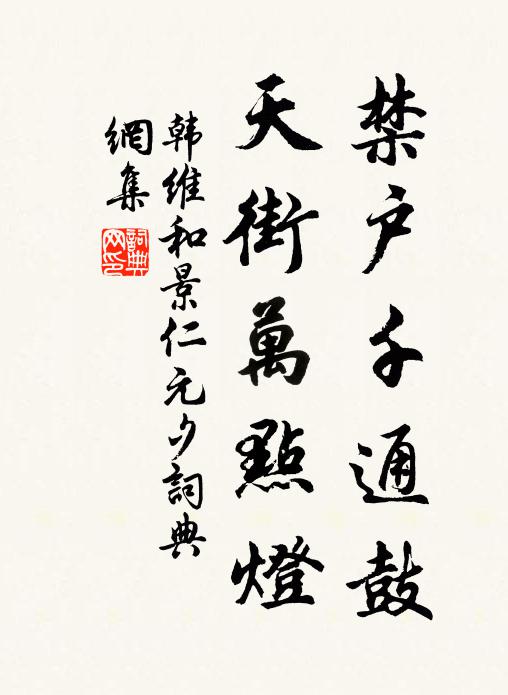 禁户千通鼓
天街萬點燈
韩維和景仁元夕詞典
網集
詞典
网印